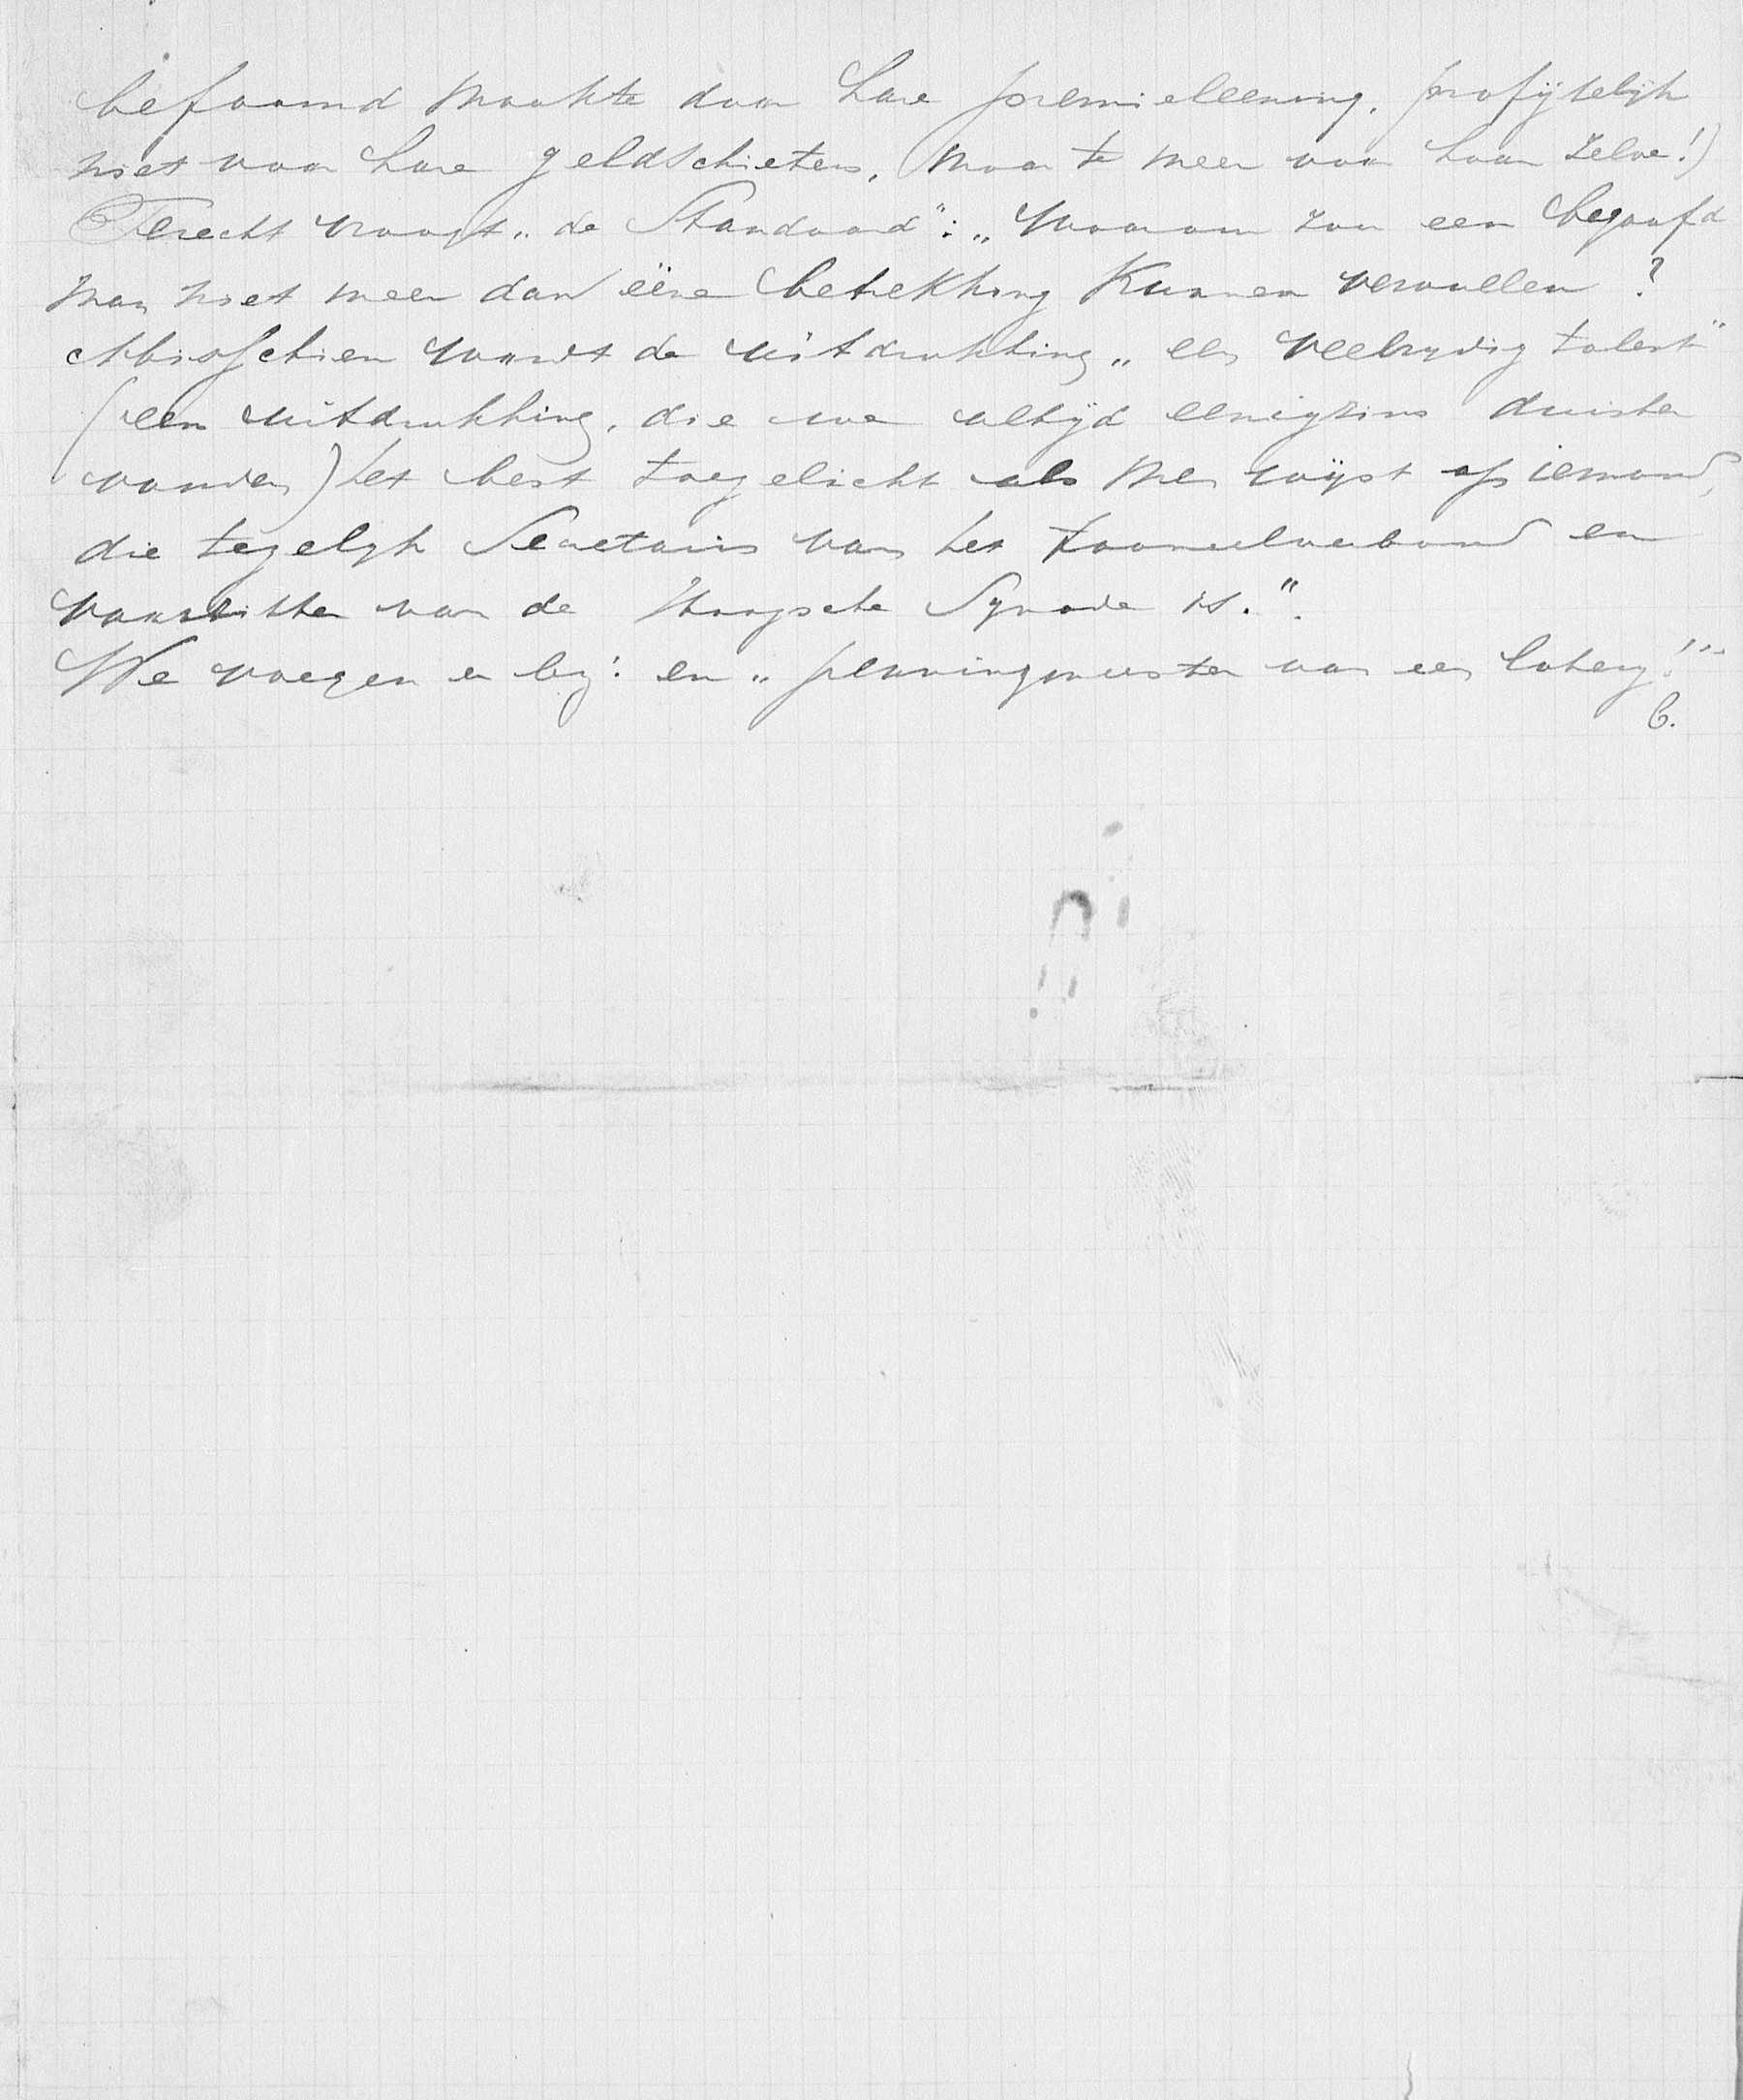 befaamd maakte door hare premieleening, profijtelijk
niet voor hare geldschieters, maar te meer voor haar zelve!)
Terecht vraagt „de Standaard": „Waarom zou een begaafd
man niet meer dan ééne betrekking kunnen vervullen?
Misschien wordt de uitdrukking „een veelzijdig talent"
(een uitdrukking, die we altijd eenigzins duister
vonden) het best toegelicht als men wijst op iemand,
die tegelijk Secretaris van het Tooneelverbond en
voorzitter van de Haagsche Synode is.".
We voegen er bij: en „penningmeester van een loterij!"
C.